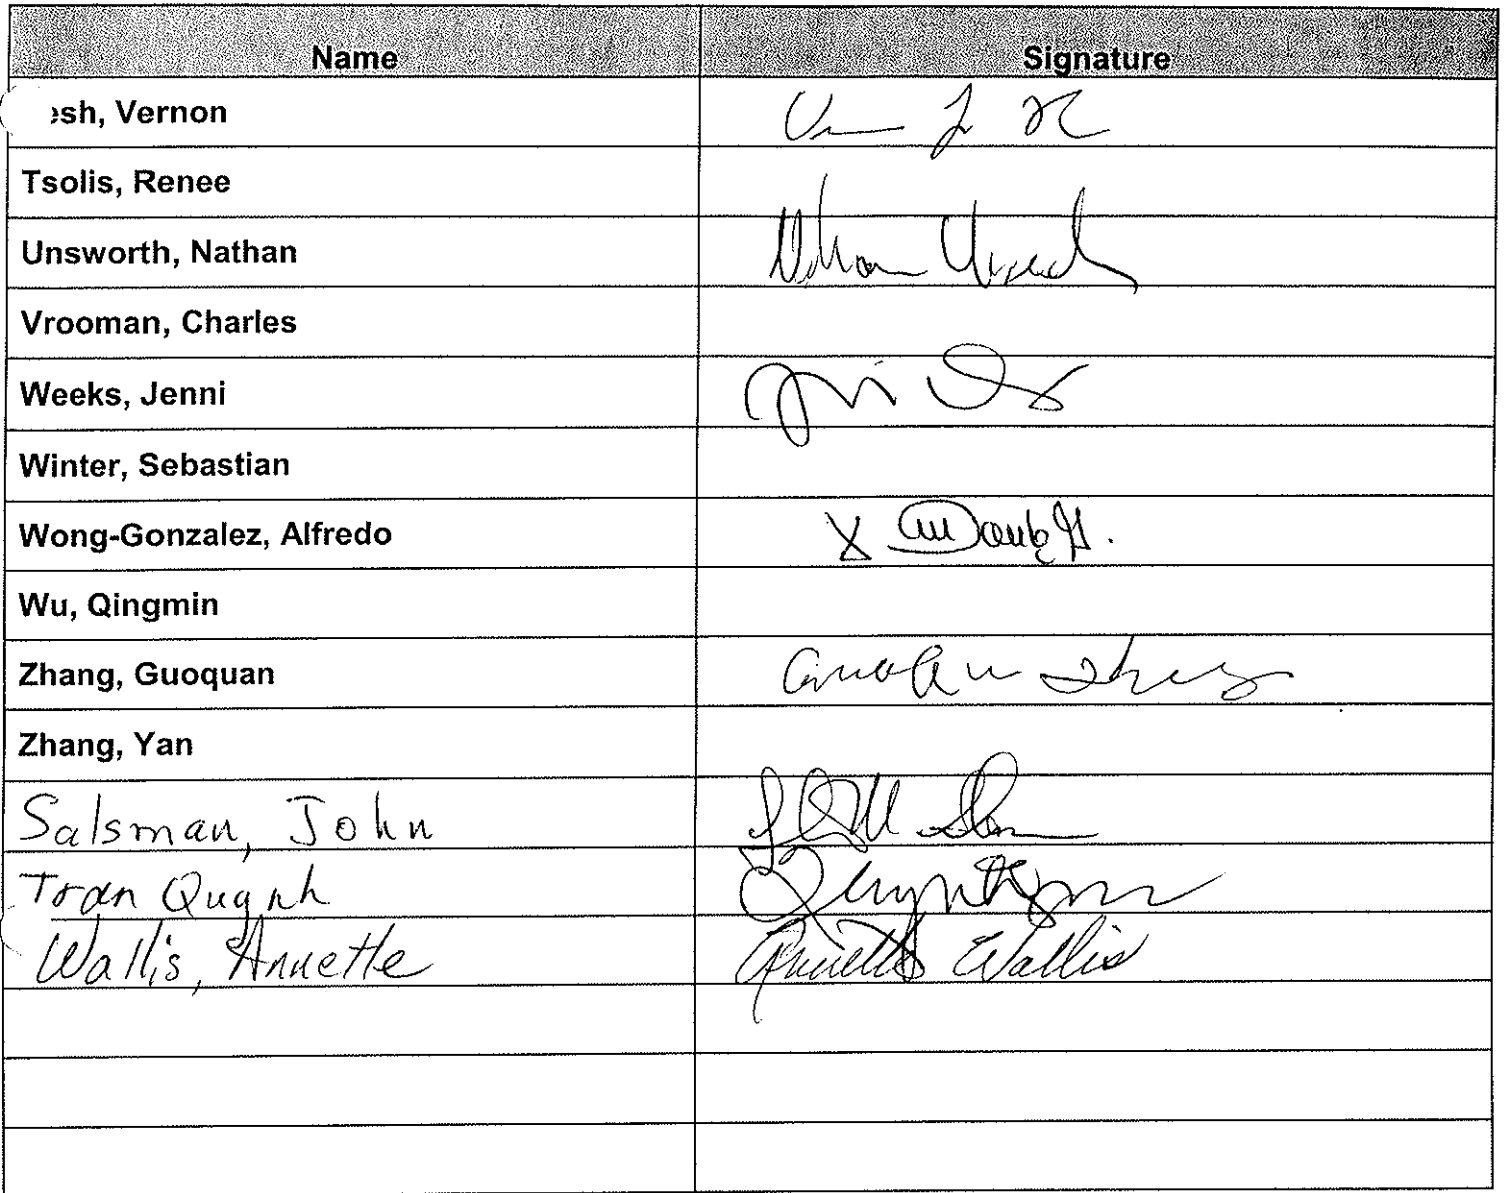 Name Signature
esh, Vernon
Tsolis, Renee
Unsworth, Nathan
Vrooman, Charles
Weeks, Jenni
Winter, Sebastian
Wong-Gonzalez, Alfredo X
Wu, Qingmin
Zhang, Guoquan
Zhang, Yan
Salsman, John
Tran Quynh
Wallis, Annette Annette Wallis